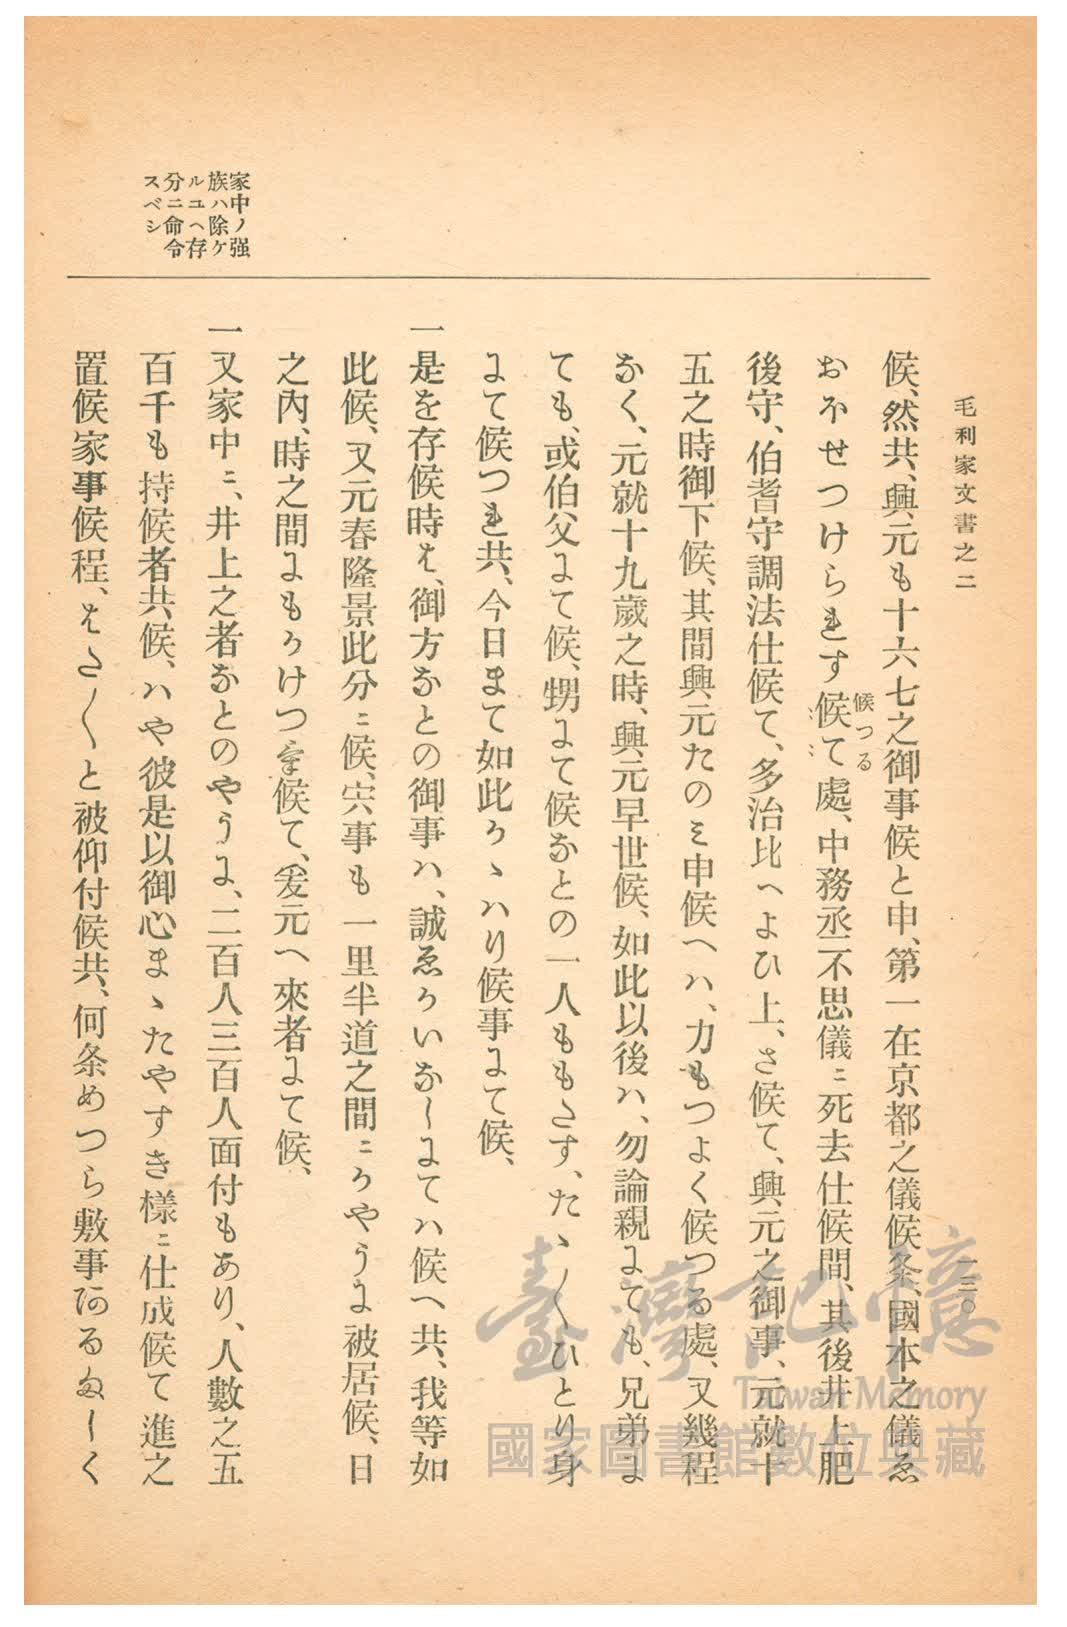 毛利家文書之二
一三〇
候、然共、興元も十六七之御事候と申、第一在京都之儀候条、國本之儀ゑ
おほせつけられす候て處、中務丞不思儀ニ死去仕候間、其後井上肥
候つる
後守、伯耆守調法仕候て、多治比へよひ上、さ候て、興元之御事、元就十
五之時御下候、其間興元たのミ申候ヘハ、力もつよく候つる處、又幾程
なく、元就十九歲之時、興元早世候、如此以後ハ、勿論親にても、兄弟に
ても、或伯父にて候、甥にて候なとの一人ももたす、たゝ〱ひとり身
にて候つれ共、今日まて如此かゝハり候事にて候、
一是を存候時は、御方なとの御事ハ、誠ゑかいなしにてハ候へ共、我等如
此候、又元春隆景此分ニ候、宍事も一里半道之間ニかやうに被居候、日
之內、時之間にもかけつけ候て、爰元へ來者にて候、
家中ノ强
族ハ除ケ
ルユヘ存
分ニ命令
スベシ
一又家中ニ、井上之者なとのやうに、二百人三百人面付もあり、人數之五
百千も持候者共候、ハや彼是以御心まゝたやすき樣ニ仕成候て進之
置候家事候程、はた〱と被仰付候共、何条めつら敷事阿るましく
臺灣記憶
Taiwan Memory
國家圖書館數位典藏